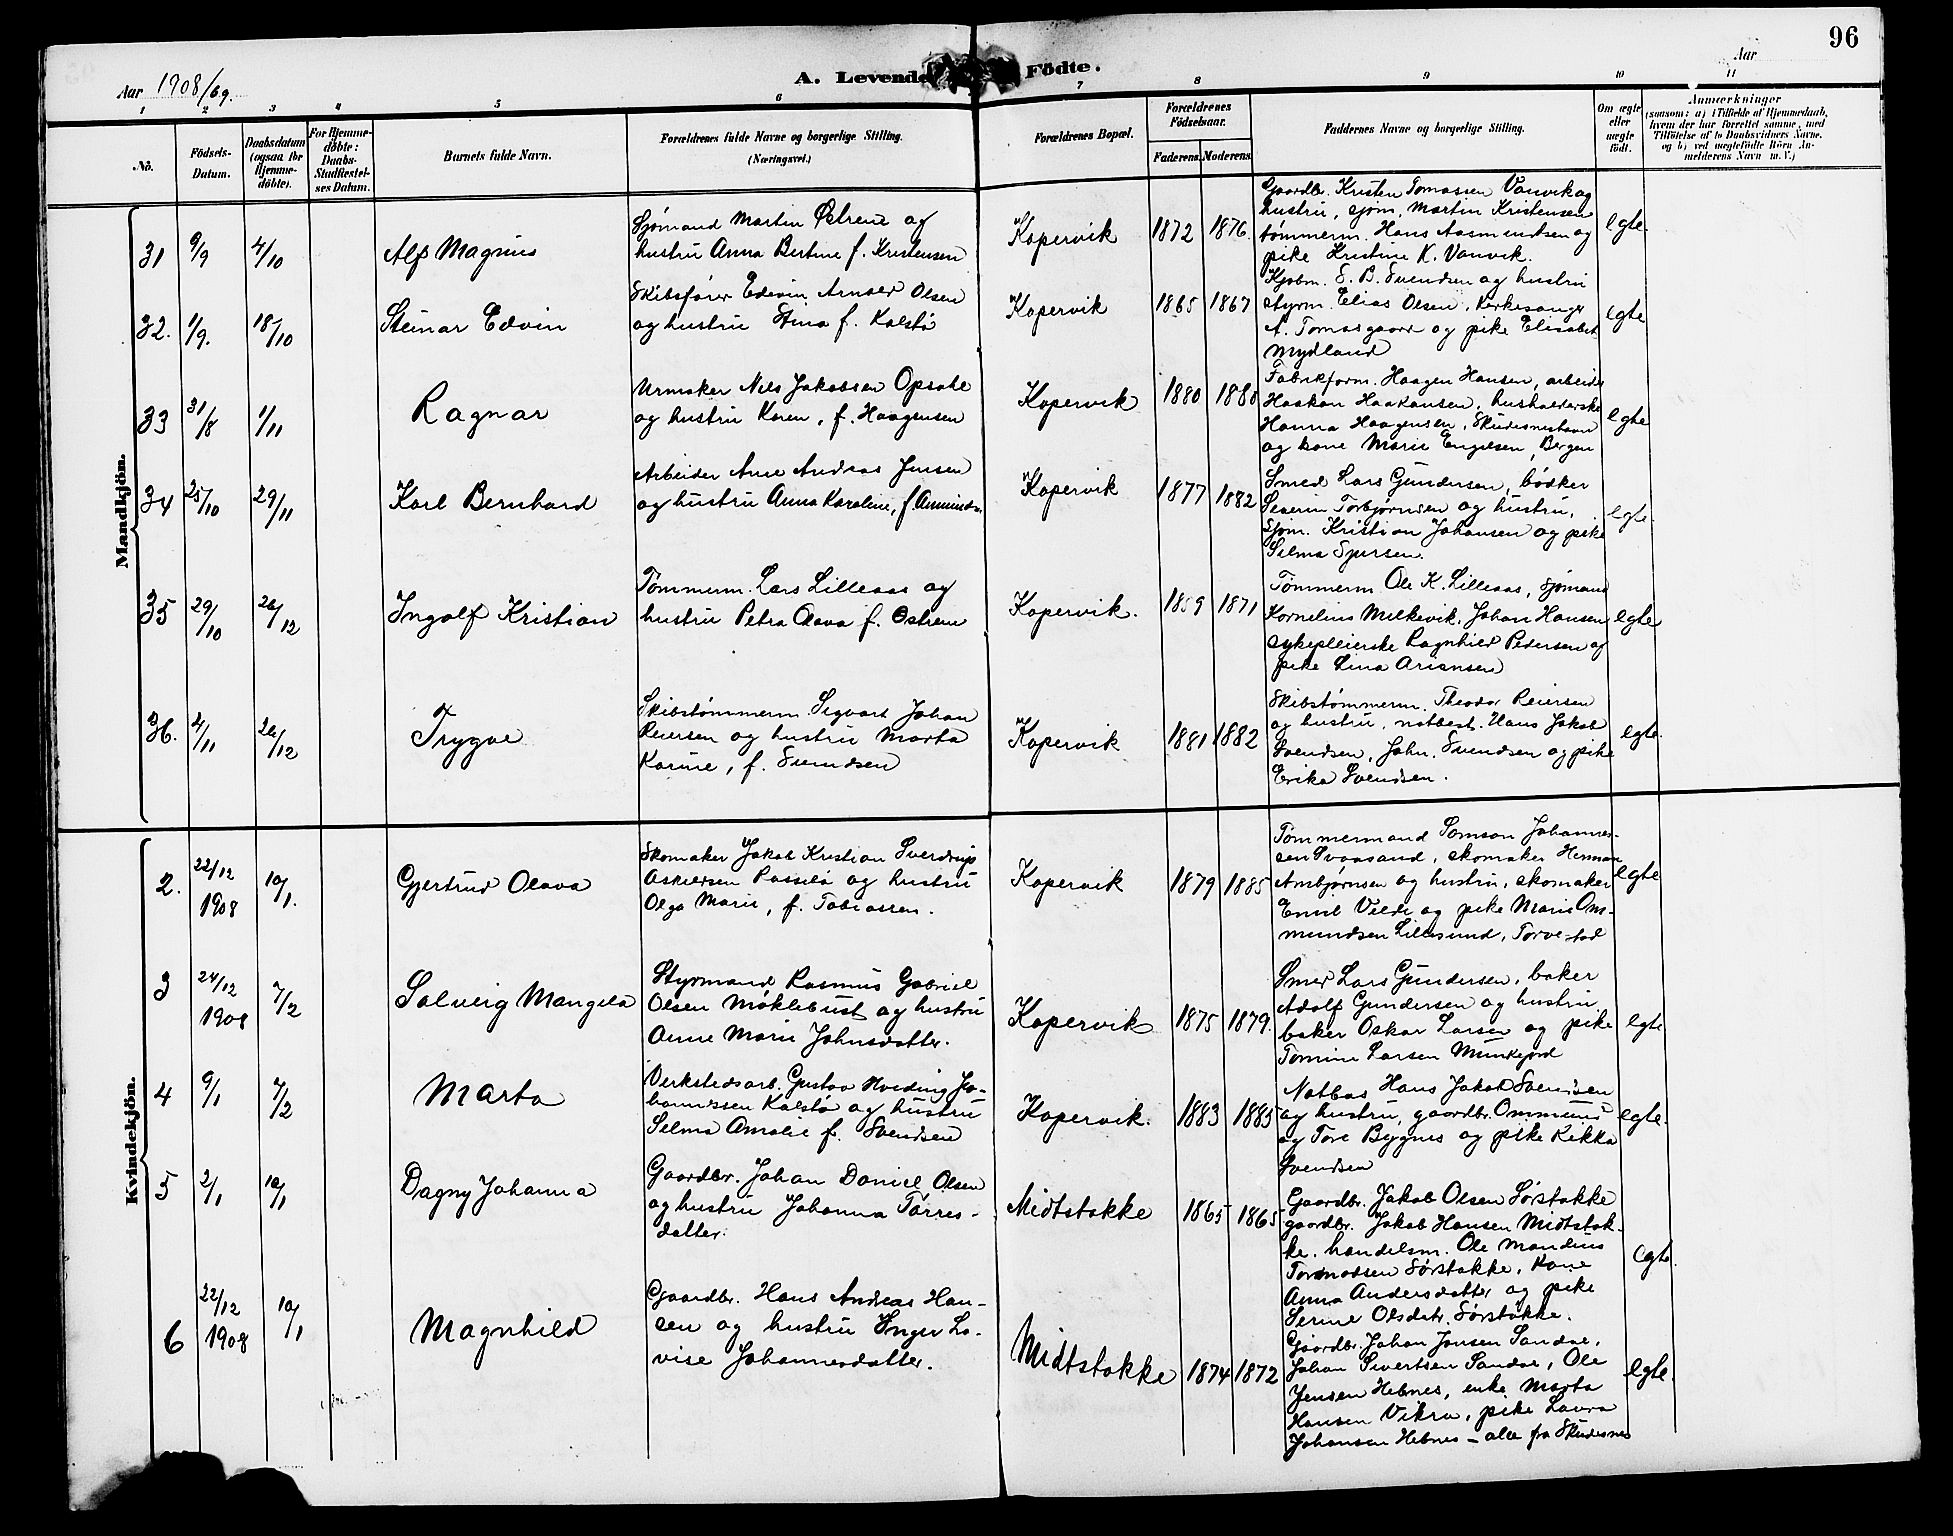 96
Aar 1908/09.
A. Levende Födte.
Aar
1 2 3 4 5 6 7 8 9 10 11
No.
Födsels-
Datum.
Daabsdatum
(ogsaa for
Hjemme-
döbte).
For Hjemme-
döbte:
Daabs-
Stadfæstel-
ses Datum.
Barnets fulde Navn.
Forældrenes fulde Navne og borgerlige Stilling.
(Næringsvei.)
Forældrenes Bopæl.
Forældrenes
Födselsaar.
Faderens. Moderens.
Faddernes Navne og borgerlige Stilling.
Om ægte
eller
uægte
födt.
Anmærkninger
(saasom: a) i Tilfælde af Hjemmedaab,
hvem der har forrettet samme, med
Tilföielse af to Daabsvidners Navne.
og b) ved uægtefödte Börn An-
melderens Navn m. V.)
Mandkjön.
31 9/9 4/10 Alf Magnus
Sjømand Martin Østrem og
hustru Anna Bertine f. Kristensen
Kopervik 1872 1876.
Gaardbr. Kristen Tomassen Vanvik og
hustru, sjøm. Martin Kristensen
tømmerm. Hans Aasmundsen og
pike Kristine K. Vanvik.
egte
32. 1/9. 18/10 Steinar Edvin
Skibsfører Edevin Arnses Olsen
og hustru Stina f. Kalstø
Kopervik 1865 1867
Kjøbm. S. B. Svendsen og hustru
styrm. Elias Olsen, Kirkesanger
A. Tomasgaard og pike Elisabet
Mydland
egte
33 31/8 1/11 Ragnar
Urmaker Nils Jakobsen Opsahl
og hustru Karen, f. Haagensen
Kopervik 1880 1880
Fabrikform. Haagen Hansen, arbeider
Haakon Haakonsen, husholderske
Hanna Haagensen, Skudesneshavn
og kone Marie Engelsen, Bergen
egte
34 25/10 29/11 Karl Bernhard
Arbeider Arne Andreas Jensen
og hustru Anna Karoline, f. Amundsen
Kopervik 1877 1882
Smed Lars Gundersen, bødker
Severin Torbjørnsen og hustru,
sjøm. Kristian Johansen og pike
Selma Syversen.
egte.
35 29/10 26/12 Ingolf Kristian
Tømmerm. Lars Lilleaas og
hustru Petra Olava f. Østrem
Kopervik. 1859 1871
Tømmerm Ole K. Lilleaas, sjømand
Kornelius Melkevik, Johan Hansen
sykepleierske Ragnhild Pedersen og
pike Lina Ariansen
egte
36. 4/11 26/12 Trygve
Skibstømmerm. Sigvart Johan
Reiersen og hustru Marta
Karine, f. Svendsen
Kopervik 1881 1882
Skibstømmerm. Theodor Reiersen
og hustru, notbest. Hans Jakob
Svendsen, John. Svendsen og pike
Erika Svendsen.
egte.
Kvindekjön.
2. 22/12 1908 10/1. Gjertrud Olava
Skomaker Jakob Kristian Sverdrup
Askersen Rossebø og hustru
Olga Marie, f. Tobiassen.
Kopervik 1879 1885
Tømmermand Samson Johannes-
sen Svaasand, skomaker Herman
Ambjørnsen og hustru, skomaker
Emil Velde og pike Marie Om-
mundsen Lillesund, Torvestad
egte
3 24/12 1908 7/2 Solveig Mangela
Styrmand Rasmus Gabriel
Olsen Møklebust og hustru
Anne Marie Johnsdatter.
Kopervik 1875 1879.
Smed Lars Gundersen, baker
Adolf Gundersen og hustru
baker Oskar Larsen og pike
Tomine Larsen Munkejord
egte
4 9/1 7/2 Marta
Verkstedsarb. Gustav Hveding Jo-
hannessen Kalstø og hustru
Selma Amalie f. Svendsen
Kopervik. 1883 1885
Notbas Hans Jakob Svendsen
og hustru, gaardbr. Ommund
og Tore Bygnes og pike Rikka
Svendsen
egte.
5 2/1 10/1 Dagny Johanna
Gaardbr. Johan Daniel Olsen
og hustru Johanna Tørres-
datter.
Midtstokke 1865 1865
Gaardbr. Jakob Olsen Sørstokke
gaardbr. Jakob Hansen Midtstok-
ke. handelsm. Ole Mandius
Tormodsen Sørstokke, Kone
Anna Andersdatter og pike
Serine Olsdatr. Sørstokke.
egte.
6 22/12 1908 10/1 Magnhild
Gaardbr. Hans Andreas Han-
sen og hustru Inger Lo-
vise Johannesdatter.
Midtstokke 1874 1872
Gaardbr. Johan Jonsen Sandoe,
Johan Sivertsen Sandoe, Ole
Jensen Hebnes, enke Marta
Hansen Vikra, pike Laura
Johansen Hebnes – alle fra Skudesnes
egte.